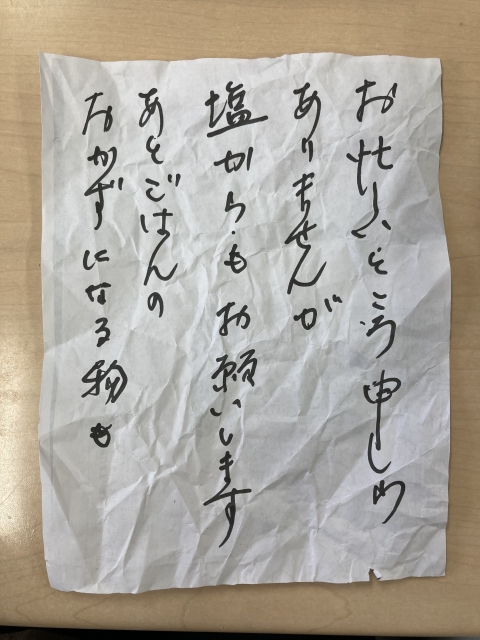 お忙しいところ申しわ
ありませんが
塩からもお願いします
あとごはんの
おかずになる物も